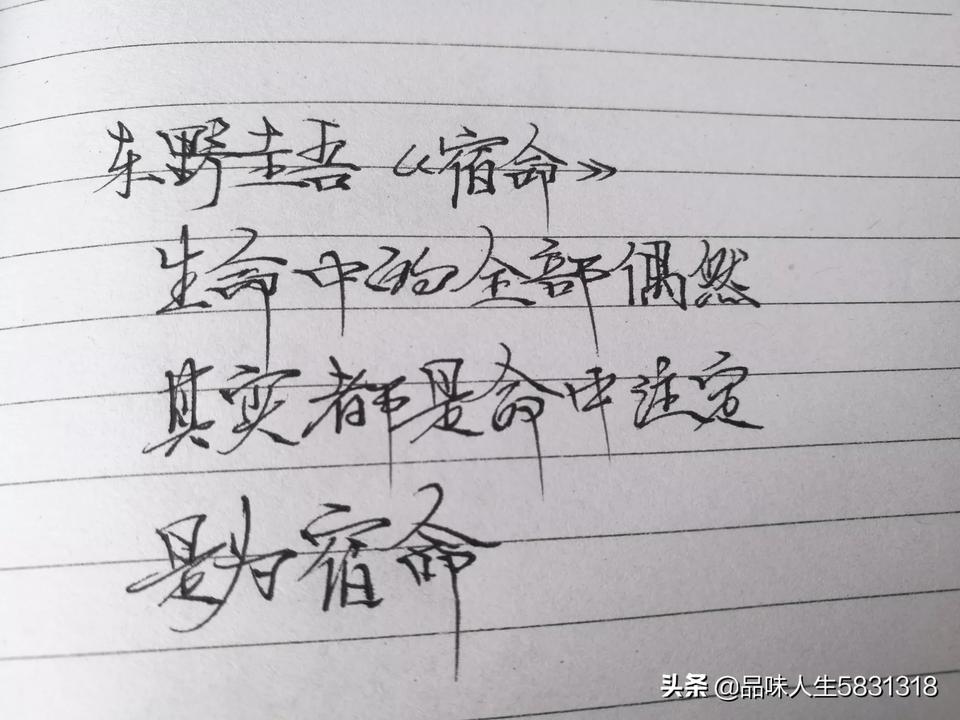 东野圭吾《宿命》
生命中的全部偶然
其实都是命中注定
是为宿命
头条 @品味人生5831318